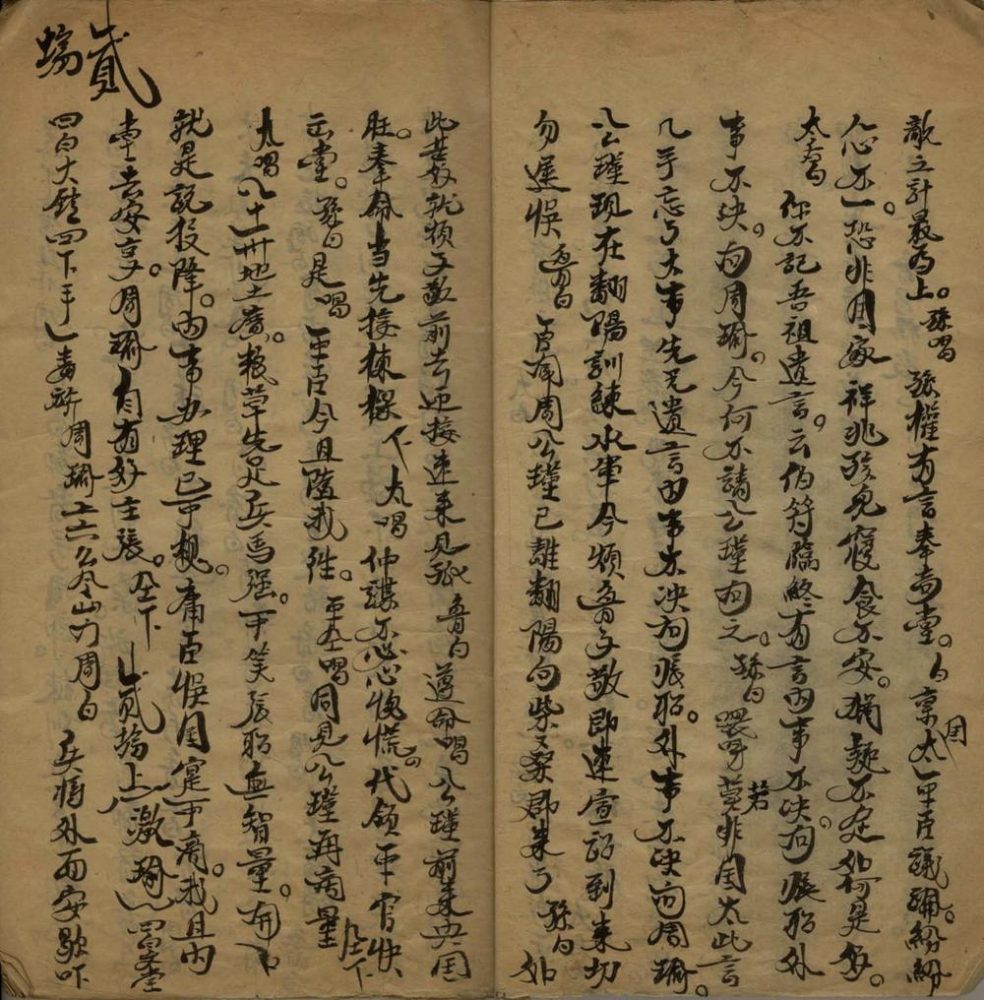 敵之計最為上。孫唱 孫權有言奉尚堂。白 稟國太 平臣議論。紛紛
人心不一恐非國家祥兆孩兒寢食不安。猶疑不定如何是好。
太唱 你不記吾祖遺言。云伯符臨終有言內事不決问張昭外
事不決。问周瑜。今何不請公瑾问之。孫白 若莫非国太此言
几乎忘了大事先兄遺言內事不决问張昭。外事不决问周瑜。
公瑾現在翻陽訓練水軍今煩魯子敬即速宣詔到來切
勿遲悮 魯白 周公瑾已離翻陽向柴桑郡來了 孫白 如
此甚好就煩子敬前去迎接速來見孤 魯白 遵命唱 公瑾前來共国
旺。奉命當先接棟樑 下 太唱 仲謀不必心慌。代領平官快
云堂。孫白 是唱 平臣今且隨我往。平唱 同見公瑾再商量 全下
九唱 八十一州地土廣。粮草先足兵馬强。可笑張昭無智量。
就是說投降。內事办理已可規。庸臣悮国寔可商。我且內
堂去安享。周瑜自有好主張。仝下 貳塲上 激瑜
四白大 四下手 周瑜上 周白 兵將外面安歇吓
貳塲